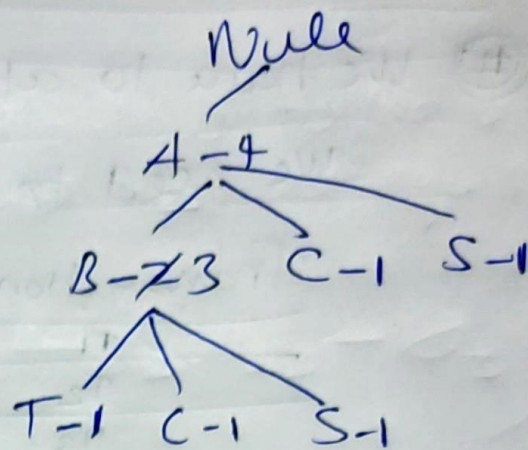 Null
A-4
B-3 C-1 S-1
T-1 C-1 S-1